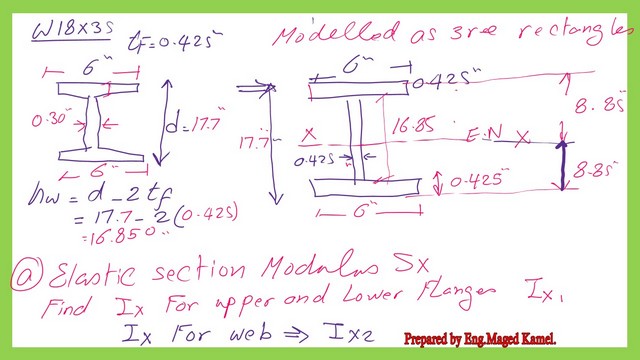 W18x35
tf=0.425"
Modelled as 3ree rectangles
6"
0.30"
d=17.7"
6"
6"
0.425"
8.85"
17.7"
X
16.85
E.N
X
0.425
8.85"
0.425"
6"
hw = d - 2tf
= 17.7 - 2(0.425)
= 16.850"
a Elastic section Modulus Sx
Find Ix For upper and Lower flanges Ix1
Ix For web ⇒ Ix2
Prepared by Eng.Maged Kamel.